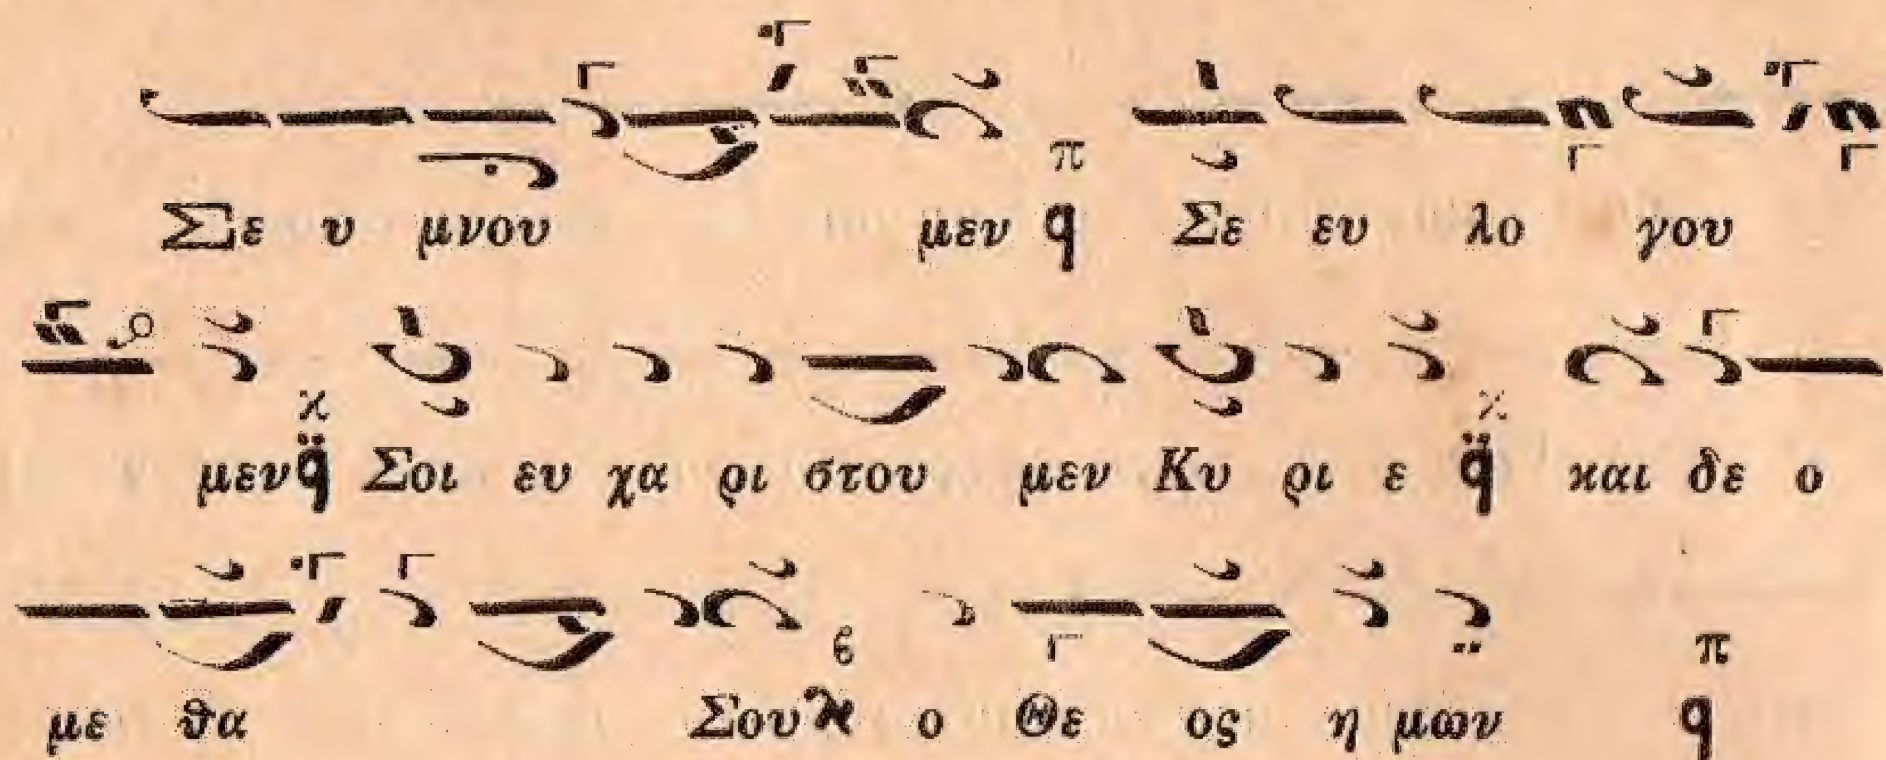 Σε υ μνου μεν Σε ευ λο γου
μεν Σοι ευ χα ρι στου μεν Κυ ρι ε και δε ο
με θα Σου ο Θε ος η μων